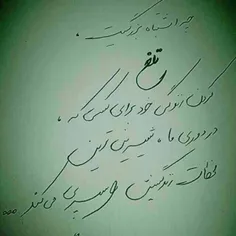 چه اشتباه بزرگیست،
تلخ
کردن زندگی خود برای کسی که،
در دوری ما، شیرین ترین
لحظات زندگیش را سپری می کند ...